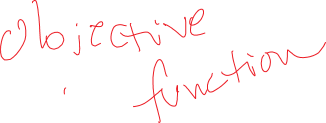 Objective
function